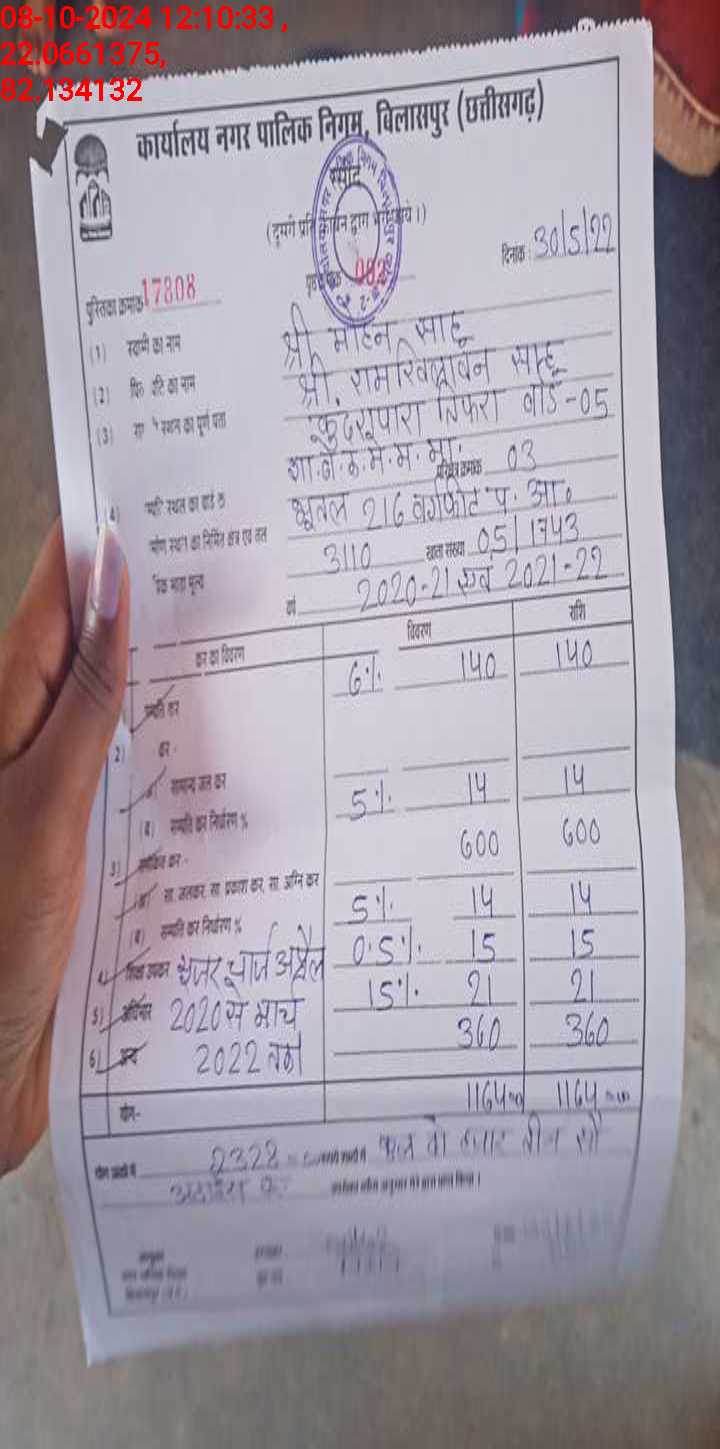 08-10-2024 12:10:33 ,
22.0661375,
82.134132
कार्यालय नगर पालिक निगम, बिलासपुर (छत्तीसगढ़)
रसीद
(दूसरी प्रति कार्बन द्वारा
दिनांक : 30/5/22
पुस्तिका क्रमांक 17808
002
(1) स्वामी का नाम श्री मोहन साहू
(2) पिता/पति का नाम श्री. रामखिलावन साहू
(3) स्थान का पूर्ण पता कुदरूपारा तिफरा वार्ड-05
शा.बें.क.मे.म.मा.
परिक्षेत्र क्रमांक 03
(4) स्थल का वार्ड क्र भूतल 216 वर्गफीट प. आ.
स्थान का निर्मित क्षेत्र एवं तल
3110 खाता संख्या 05/1743
भाड़ा मूल्य
वर्ष 2020-21 एवं 2021-22
कर का विवरण विवरण राशि
6%. 140 140
सम्पत्ति कर
2) कर -
सामान्य जल कर
5%. 14 14
(ब) सम्पत्ति कर निर्धारण %
600 600
3) समेकित कर -
(अ) सा. जलकर, सा. प्रकाश कर, सा. अग्नि कर
5%. 14 14
(ब) सम्पत्ति कर निर्धारण %
4) शिक्षा उपकर यूजर चार्ज अप्रैल 0.5%. 15 15
5) अधिभार 2020 से मार्च 15%. 21 21
6) अन्य 2022 तक 360 360
योग- 1164=00 1164=00
2328=00 कुल दो हजार तीन सौ
अठाईस रू.